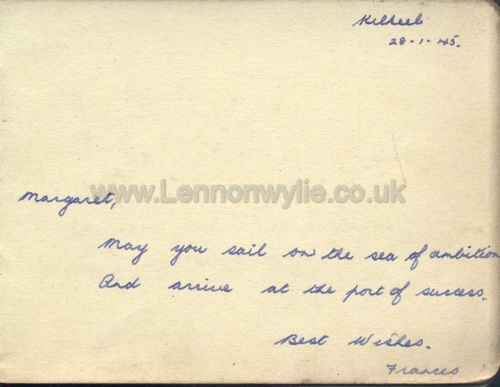 Kilkeel
28-1-45.
www.Lennonwylie.co.uk
Margaret,
May you sail on the sea of ambition
And arrive at the port of success.
Best Wishes.
Frances